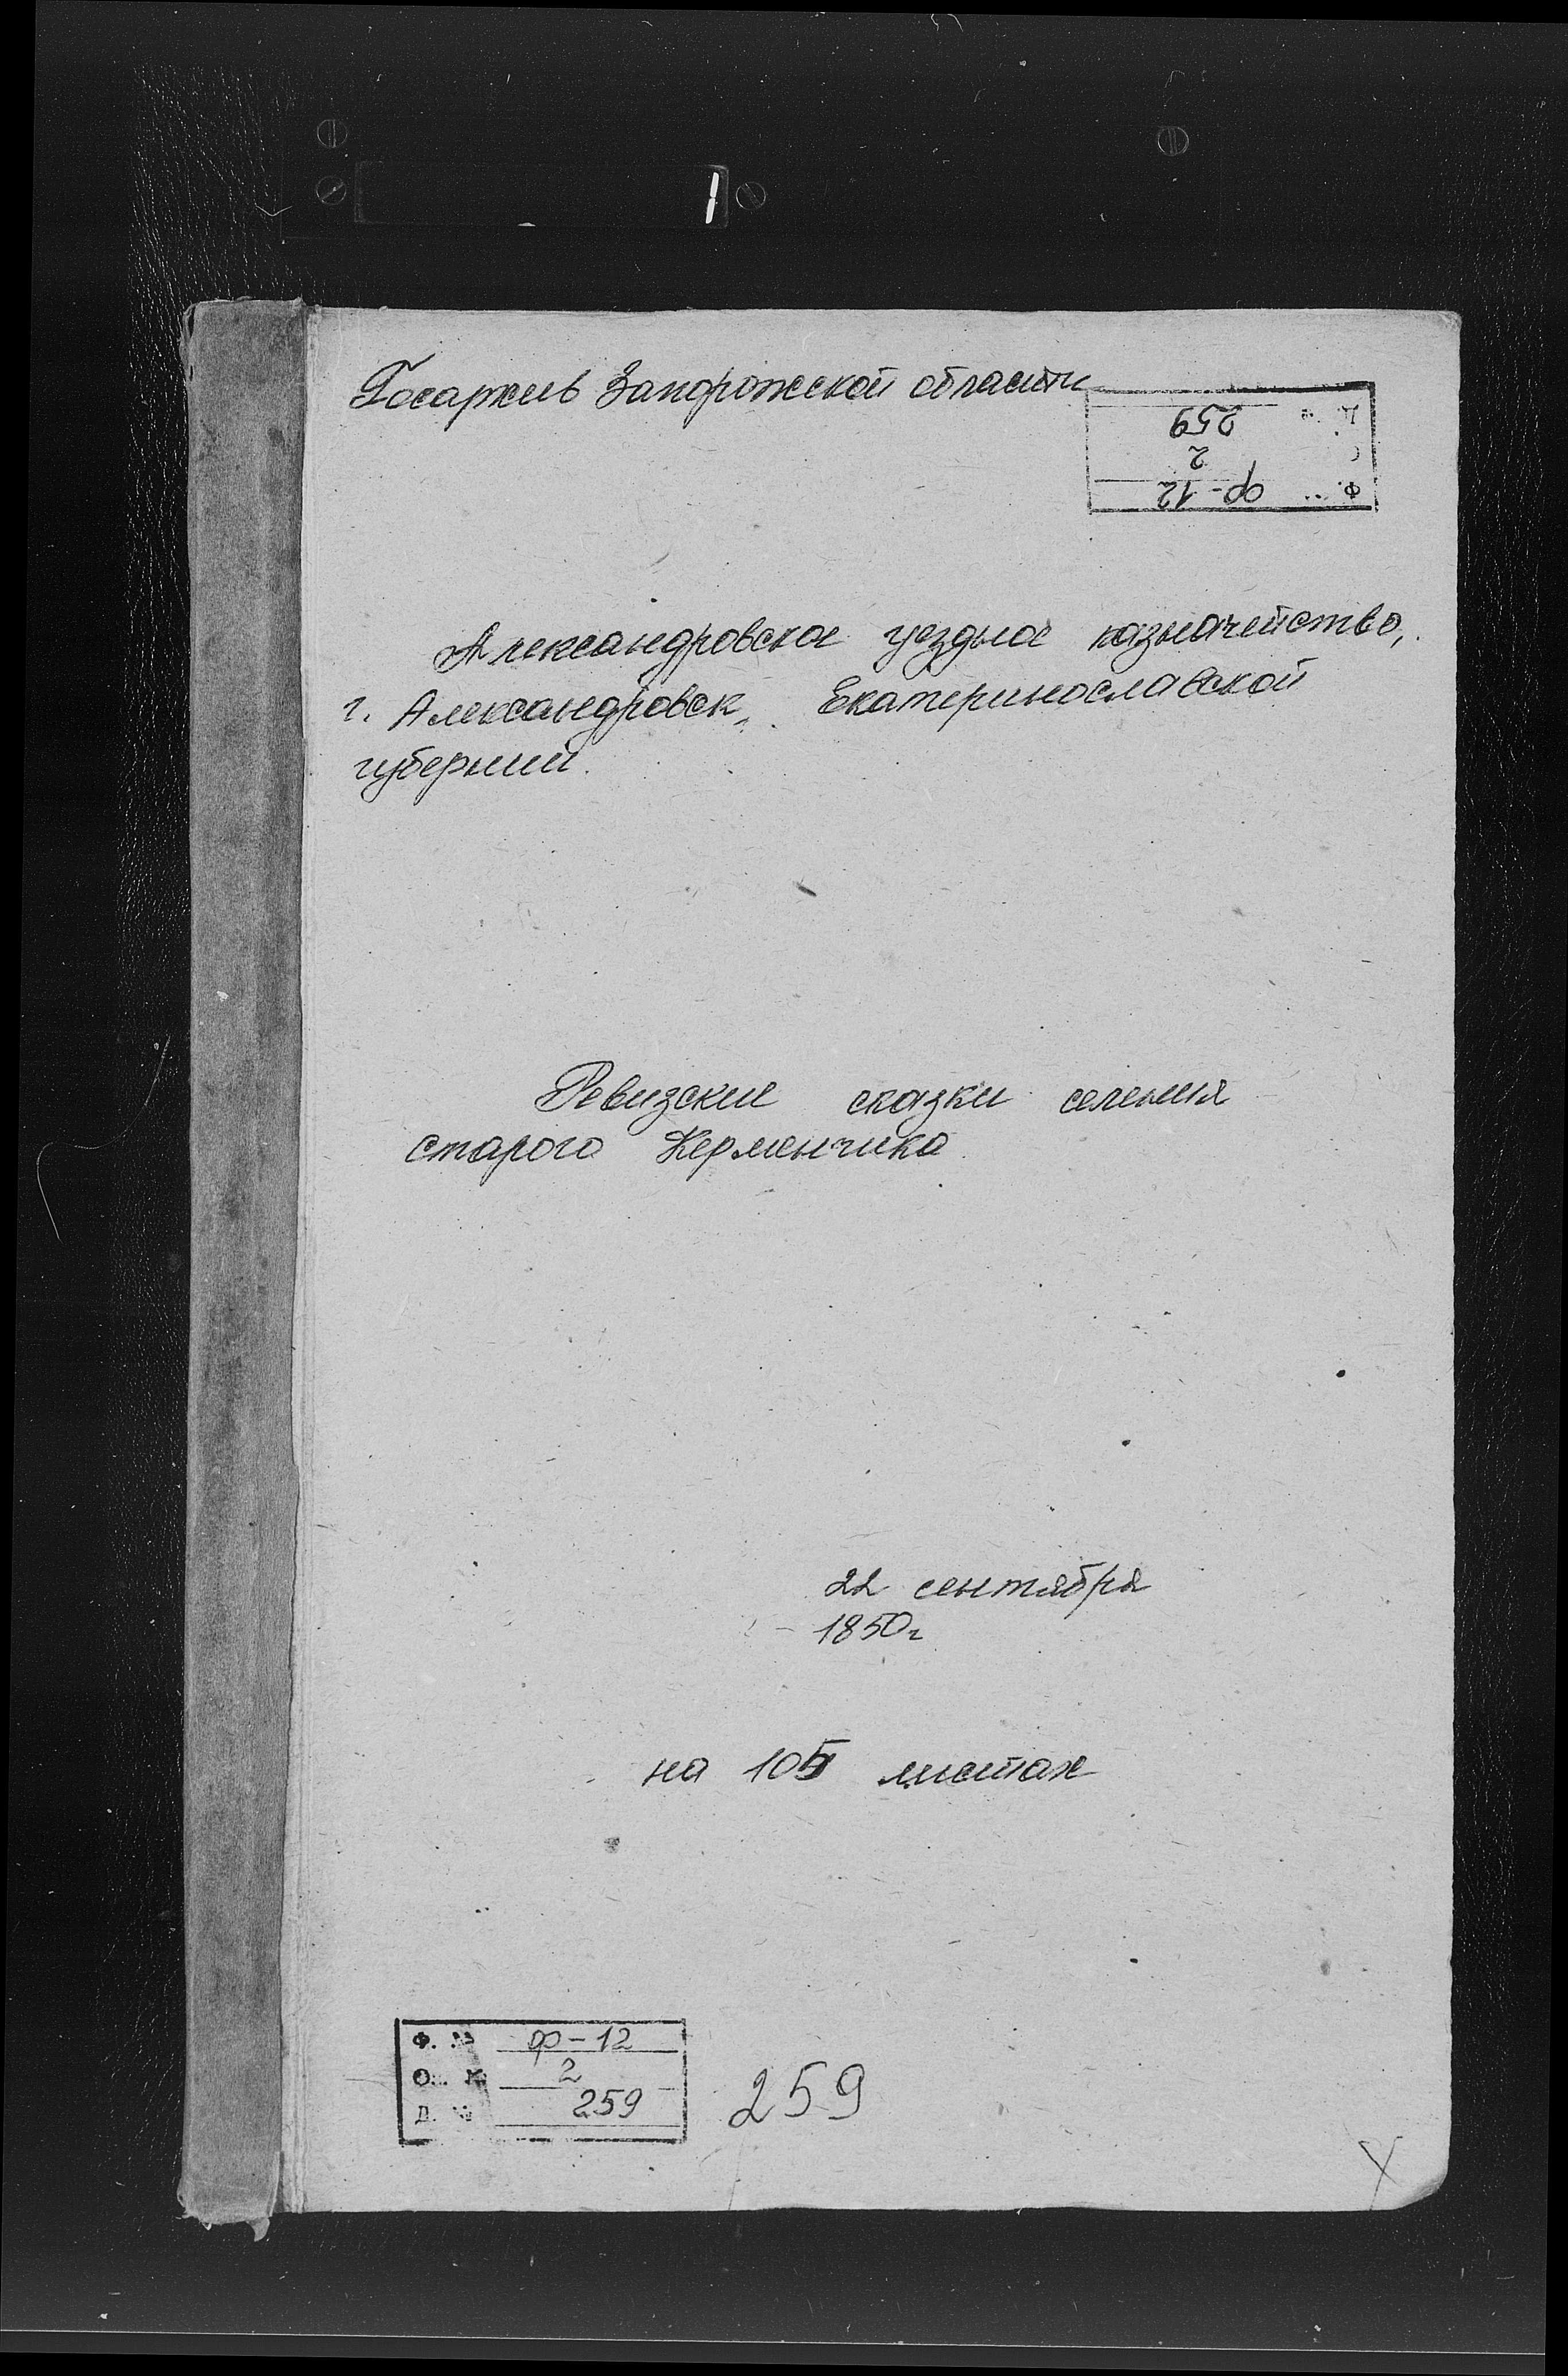 1
Госархив Запорожской области
Д. № 259
2
Ф. № ф-12
Александровское уездное казначейство,
г. Александровск, Екатеринославской
губернии.
Ревизские сказки селения
старого Керменчика
22 сентября
1850г
на 105 листах
Ф. № ф-12
Оп. № 2
Д. № 259
259